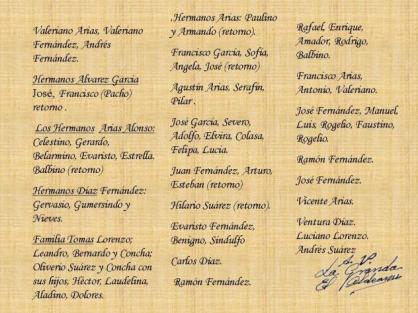 Valeriano Arias, Valeriano
Fernández, Andrés
Fernández.
Hermanos Alvarez Garcia
José, Francisco (Pacho)
retorno .
Los Hermanos Arias Alonso:
Celestino, Gerardo,
Belarmino, Evaristo, Estrella.
Balbino (retorno)
Hermanos Diaz Fernández:
Gervasio, Gumersindo y
Nieves.
Familia Tomas Lorenzo;
Leandro, Bernardo y Concha;
Oliverio Suárez y Concha con
sus hijos, Héctor, Laudelina,
Aladino, Dolores.
.Hermanos Arias: Paulino
y Armando (retorno).
Francisco Garcia, Sofia,
Angela, José (retorno)
Agustin Arias, Serafin,
Pilar .
José Garcia, Severo,
Adolfo, Elvira, Colasa,
Felipa, Lucia.
Juan Fernández, Arturo,
Esteban (retorno)
Hilario Suárez (retorno).
Evaristo Fernández,
Benigno, Sindulfo
Carlos Diaz.
Ramón Fernández.
Rafael, Enrique,
Amador, Rodrigo,
Balbino.
Francisco Arias,
Antonio, Valeriano.
José Fernández, Manuel,
Luis, Rogelio, Faustino,
Rogelio.
Ramón Fernández.
José Fernández.
Vicente Arias.
Ventura Diaz.
Luciano Lorenzo.
Andrés Suárez
A. V.
La Granda
El